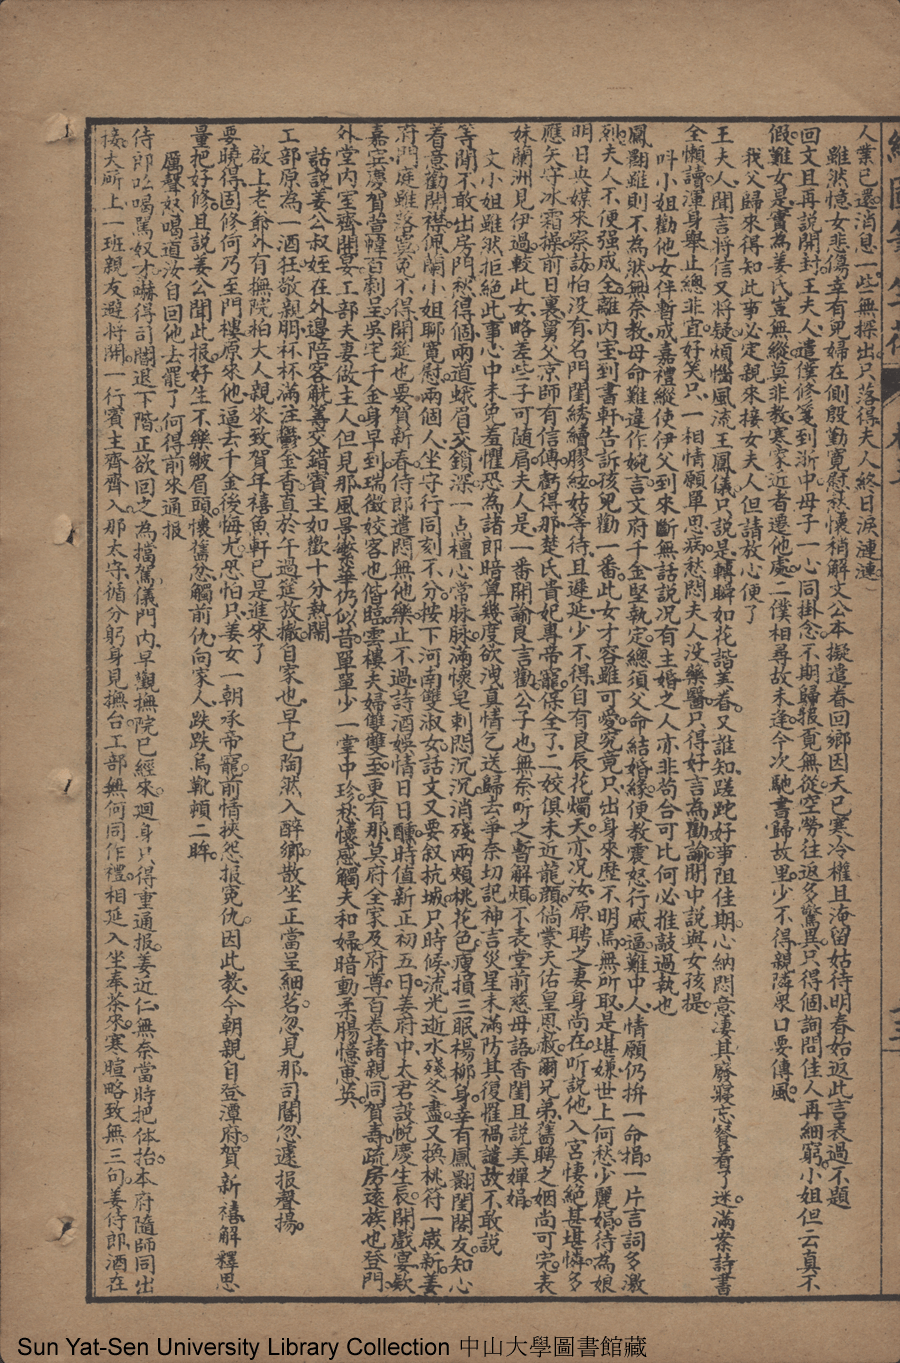 人業已還消息一些無探出只落得夫人終日淚漣漣
雖然憶女悲傷幸有兒婦在側殷勤寬慰愁懷稍解文公本擬遣眷回鄉因天已寒冷權且淹留姑待明春始返此言表過不題
回文且再說開封王夫人遣僕修箋到浙中母子一心同掛念不期歸報覓無從空勞往返多驚異只得個詢問佳人再細窮小姐但云真不
假難女是實為姜氏豈無縱莫非教寒家近者遷他處二僕相尋故未逢今次馳書歸故里少不得親隣眾口要傳風
我父歸來得知此事必定親來接女夫人但請放心便了
王夫人聞言將信又將疑煩惱風流王鳳儀只說是轉瞬如花諧美眷又誰知蹉跎好事阻佳期心納悶意淒其廢寢忘餐着了迷滿案詩書
全懶讀渾身舉止總非宜好笑只一相情願單思病愁悶夫人没藥醫只得好言為勸諭閒中説與女孩提
吽小姐勸他女伴暫成嘉禮縱使伊父到來斷無話説况有主婚之人亦非苟合可比何必推敲過執也
鳳翾雖則不為然無奈教母命難違作婉言文府千金堅執定總須父命結婚緣便教震怒行威逼難中人情願仍拚一命捐一片言詞多激
烈夫人不便強成全離内室到書軒告訴孩兒勸一番此女才容雖可愛究竟只出身來歷不明焉無所取是堪嫌世上何愁少麗娟待為娘
明日央媒來察訪怕没有名門閨綉續膠絃姑等待且遲延少不得自有良辰花燭天亦况汝原聘之妻身尚在听説他入宫悽絶甚堪憐多
應矢守冰霜操前日裏舅父京師有信傳虧得那楚氏貴妃專帝寵保全了二姣俱未近龍顔倘蒙天佑皇恩赦爾兄弟舊聘之姻尚可完表
妹蘭洲見伊過較此女略差些子可随肩夫人是一番開諭良言勸公子也無奈听之暫解煩不表堂前慈母語香閨且説美嬋娟
文小姐雖然拒絶此事心中未免羞懼恐為諸郎暗算幾度欲洩真情乞送歸去爭奈切記神言災星未滿防其復罹禍譴故不敢説
等閒不敢出房門愁得個兩道蛾眉交鎖深一点檀心常脉脉滿懷皂刺悶沉沉消殘兩頰桃花色瘦損三眠楊柳身幸有鳳翾閨閣友知心
着意勸開襟佩蘭小姐聊寬慰兩個人坐守行同刻不分按下河南雙淑女話文又要叙杭城只時候流光逝水殘冬盡又換桃符一歲新姜
府門庭雖落寞免不得開筵也要賀新春侍郎遣悶無他樂止不過詩酒娛情日日醺時值新正初五日姜府中太君設帨慶生辰開戲宴欵
嘉賓慶賀萱幃百剩呈吳宅千金身早到瑞徵姣客也偕臨雲樓夫婦雙雙至更有那莫府全家及府尊百巷諸親同賀壽疏房遠族也登門
外堂内室齊開宴工部夫妻做主人但見那風景繁華仍似昔單單少一掌中珍愁懷感觸夫和婦暗動柔腸憶蕙英
話説姜公叔姪在外邊陪客觥籌交錯賓主如歡十分熱鬧
工部原為一酒狂敬親朋杯杯滿注鬱金香直於午過筵放撤自家也早已陶然入醉鄉散坐正當呈細茗忽見那司閽忽遽报聲揚
啟上老爺外有撫院柏大人親來致賀年禧魚軒已是進來了
要曉得固修何乃至門樓原來他逼去千金後悔尤恐怕只姜女一朝承帝寵前情挾怨报寃仇因此教今朝親自登潭府賀新禧解釋思
量把好修且説姜公聞此报好生不樂皺眉頭懷舊忿觸前仇向家人跌跌烏靴頓二眸
厲聲怒喝道汝自回他去罷了何得前來通报
侍郎吆喝罵奴才嚇得司閽退下階正欲回之為擋駕儀門内早觀撫院已經來廻身只得重通报姜近仁無奈當時把体抬本府隨師同出
接大所上一班親友避将開一行賓主齊齊入那太守循分躬身見撫台工部無何同作禮相延入坐奉茶來寒暄略致無三句姜侍郎酒在
Sun Yat-Sen University Library Collection 中山大學圖書館藏